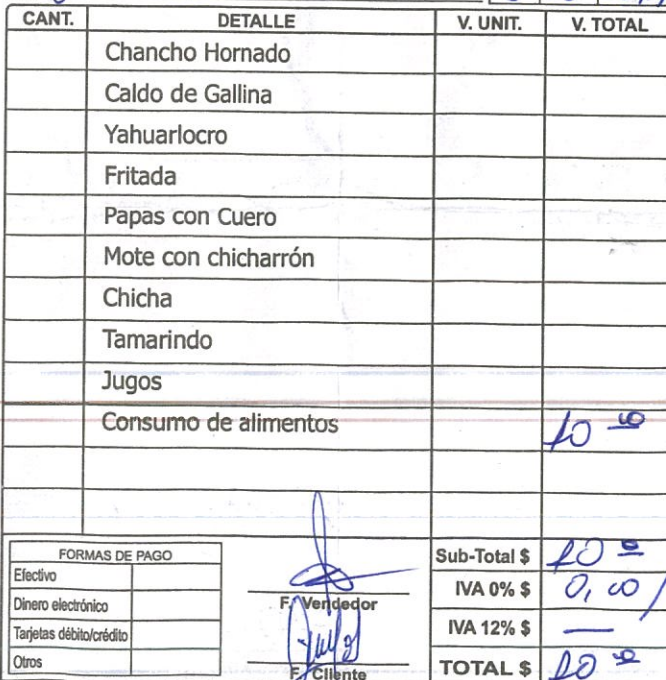 CANT. DETALLE V. UNIT. V. TOTAL
Chancho Hornado
Caldo de Gallina
Yahuarlocro
Fritada
Papas con Cuero
Mote con chicharrón
Chicha
Tamarindo
Jugos
Consumo de alimentos 10 00
FORMAS DE PAGO
Efectivo
Dinero electrónico
Tarjetas débito/crédito
Otros
F. Vendedor
F. Cliente
Sub-Total $ 10 00
IVA 0% $ 0,00
IVA 12% $ —
TOTAL $ 10 00